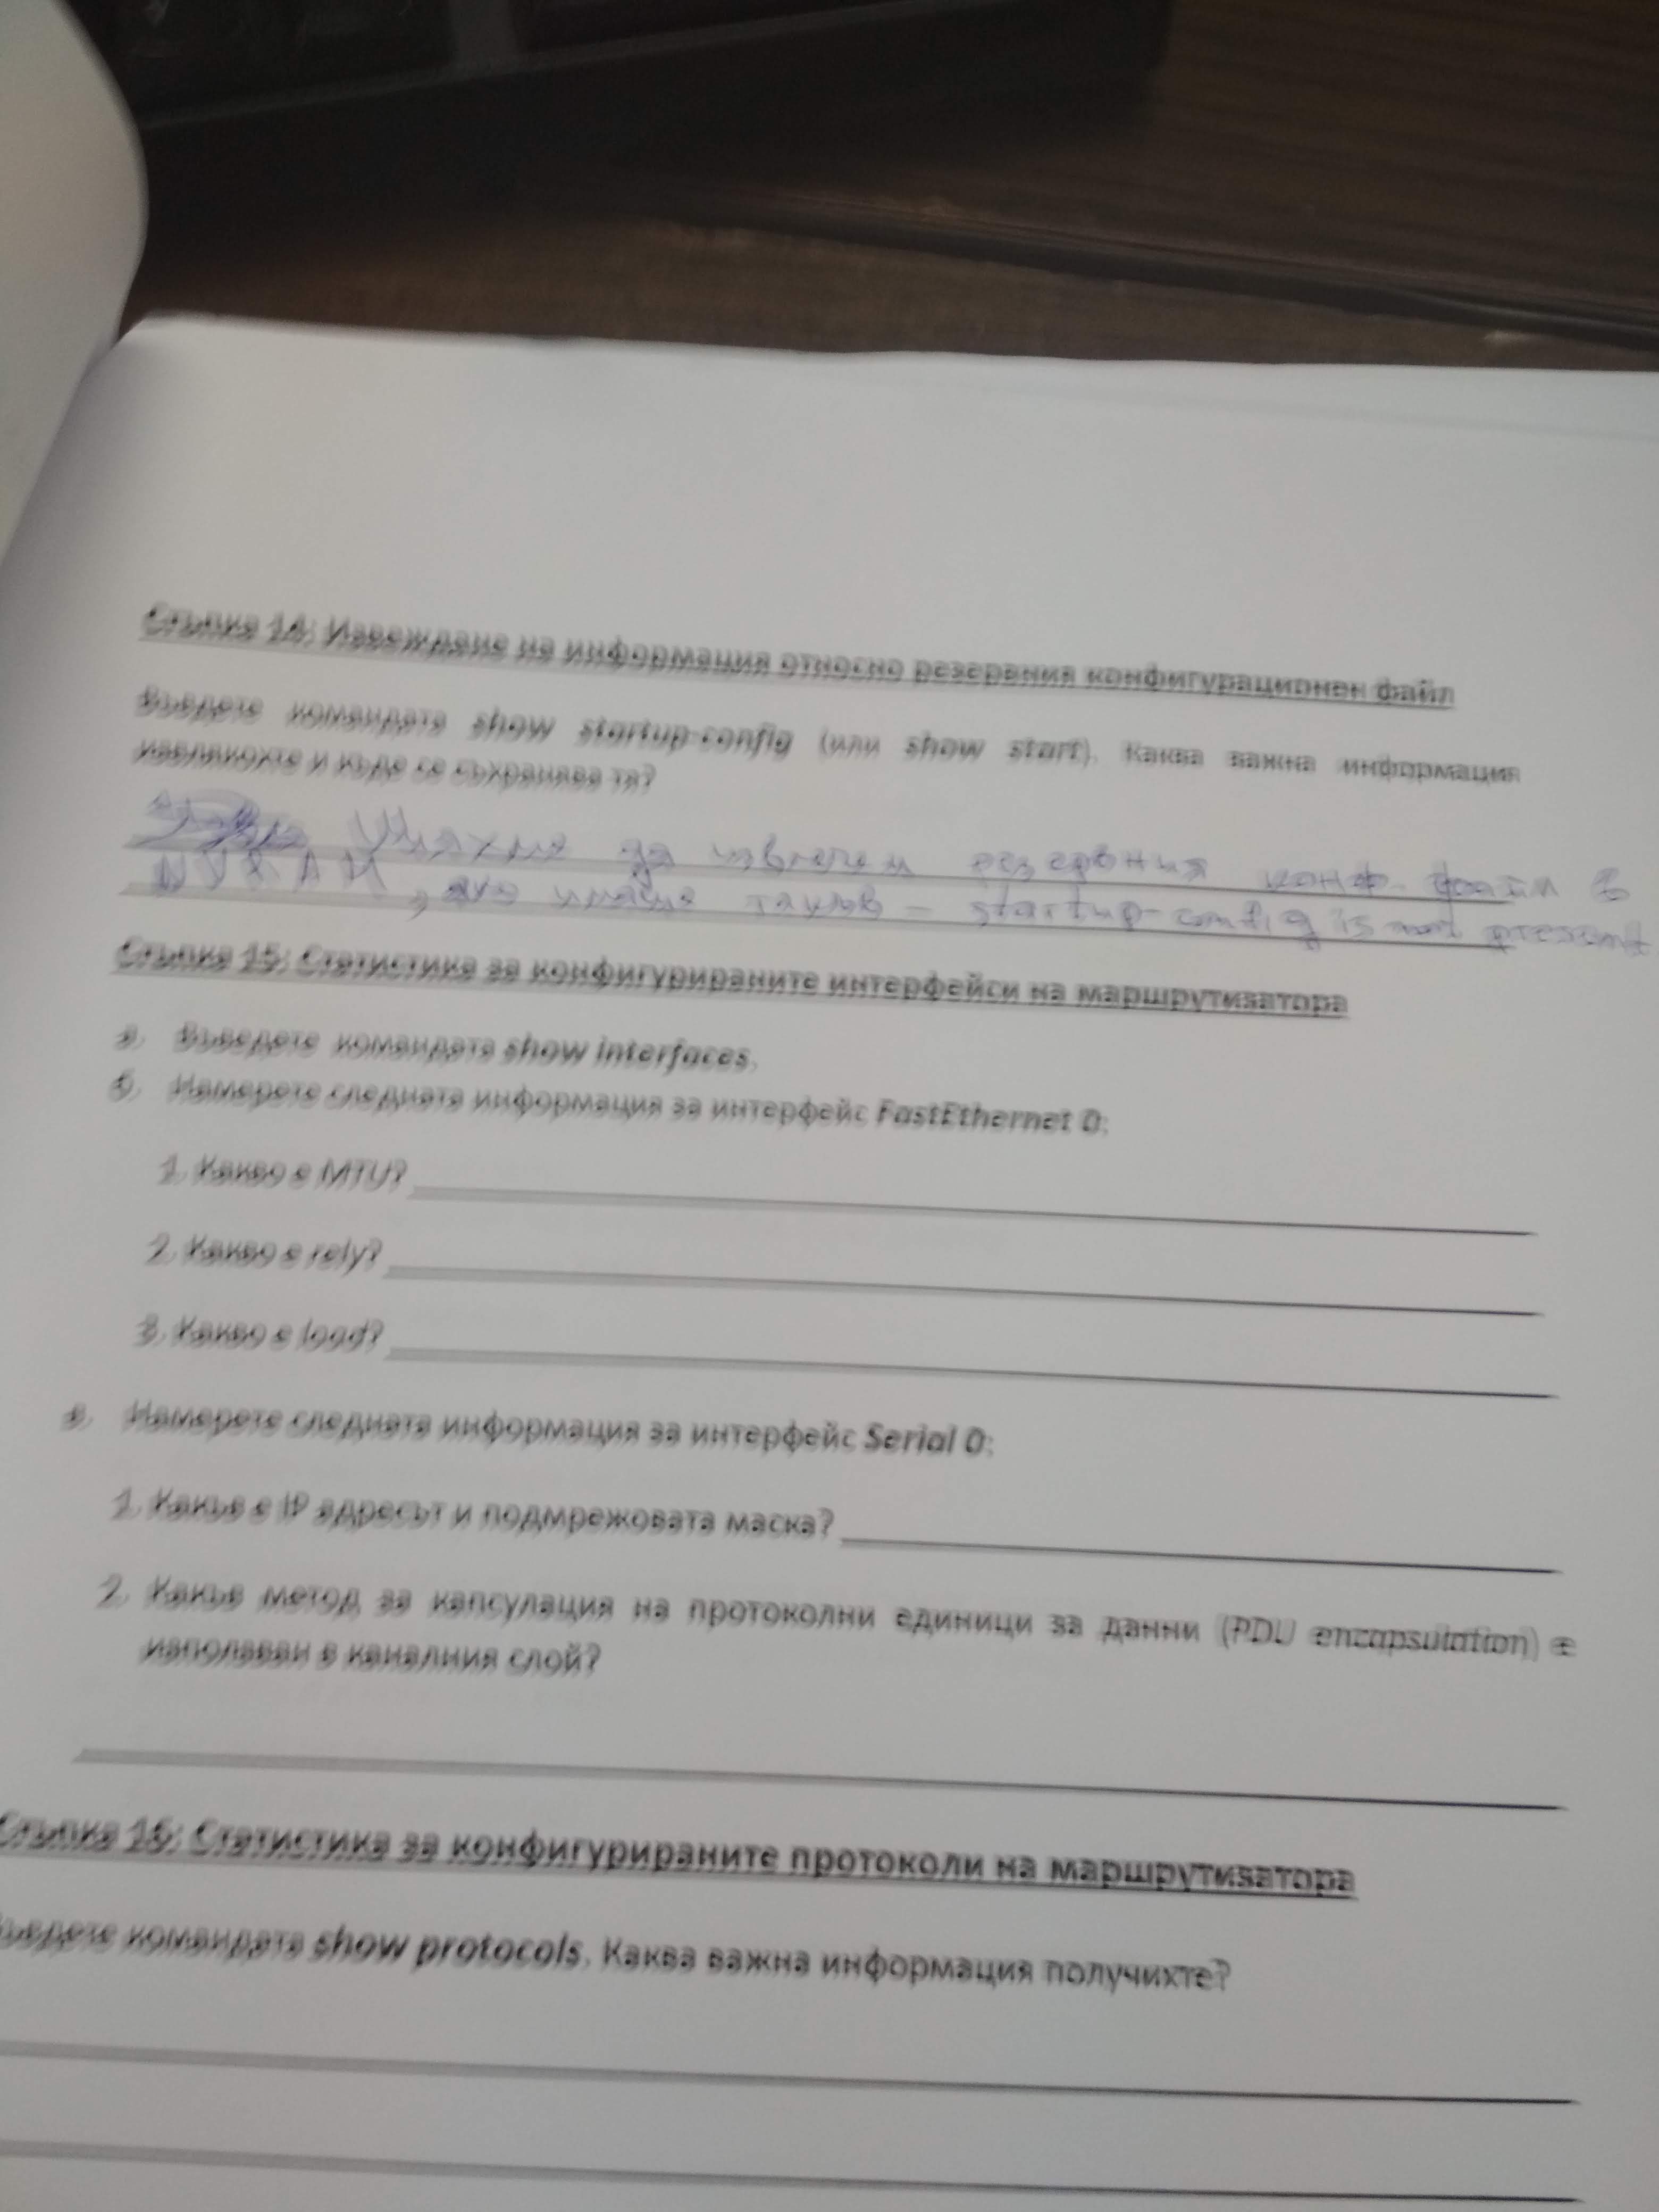 Стъпка 14: Извеждане на информация относно резервния конфигурационен файл
Въведете командата show startup-config (или show start). Каква важна информация
извлякохте и къде се съхранява тя?
Щяхме да извлечем резервния конф. файл в
NVRAM, ако имаше такъв – startup-config is not present
Стъпка 15: Статистика за конфигурираните интерфейси на маршрутизатора
а. Въведете командата show interfaces.
б. Намерете следната информация за интерфейс FastEthernet 0:
1. Какво е MTU?
2. Какво е rely?
3. Какво е load?
в. Намерете следната информация за интерфейс Serial 0:
1. Какъв е IP адресът и подмрежовата маска?
2. Какъв метод за капсулация на протоколни единици за данни (PDU encapsulation) е
използван в каналния слой?
Стъпка 16: Статистика за конфигурираните протоколи на маршрутизатора
Въведете командата show protocols. Каква важна информация получихте?